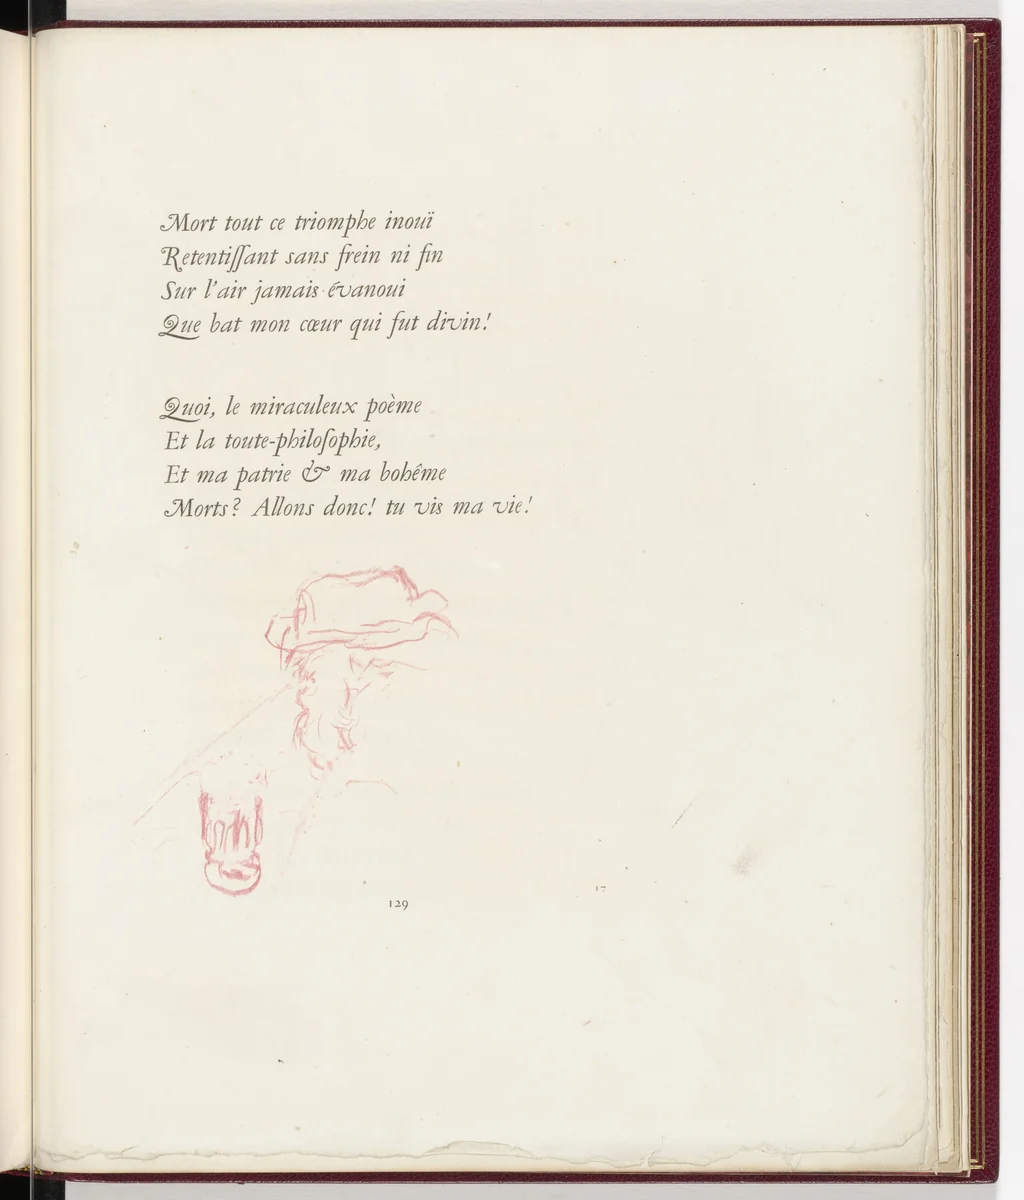 Mort tout ce triomphe inouï
Retentiſſant sans frein ni fin
Sur l'air jamais évanoui
Que bat mon cœur qui fut divin!
Quoi, le miraculeux poème
Et la toute-philoſophie,
Et ma patrie & ma bohême
Morts? Allons donc! tu vis ma vie!
17
129